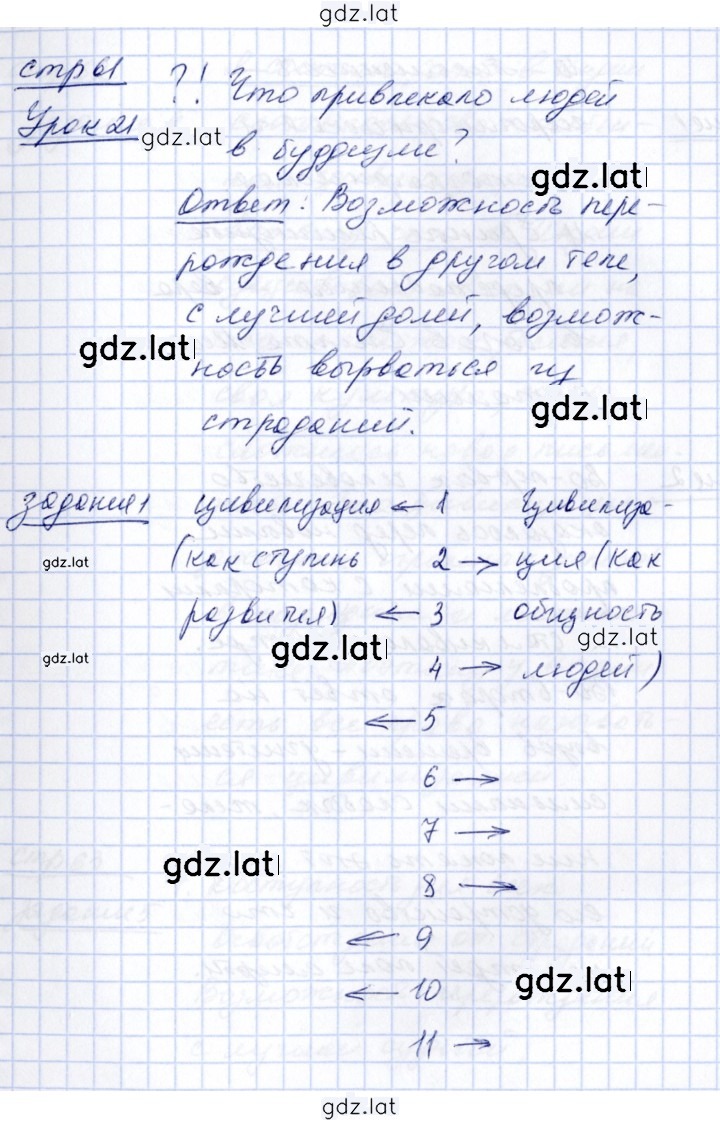 gdz.lat
стр 61 ?! Что привлекало людей
Урок 21 gdz.lat в буддизме?
gdz.lat
Ответ: Возможность пере-
рождения в другом теле,
с лучшей долей, возмож-
gdz.lat
ность вырваться из
gdz.lat
страданий.
задания 1 цивилизация ← 1 Цивилиза-
gdz.lat (как ступень 2 → ция (как
развития) ← 3 общность
gdz.lat gdz.lat
gdz.lat 4 → людей)
← 5
6 →
7 →
gdz.lat 8 →
← 9
gdz.lat
← 10
11 →
gdz.lat